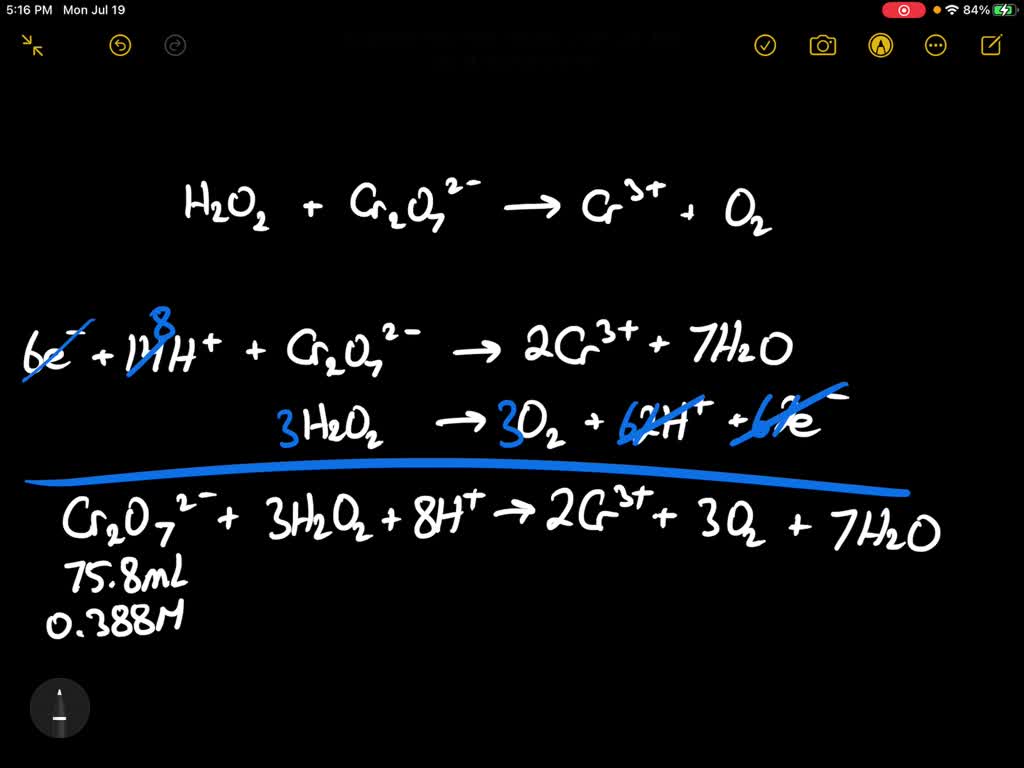 5:16 PM Mon Jul 19 84%
H₂O₂ + Cr₂O₇²⁻ → Cr³⁺ + O₂
8
6e⁻ + 14H⁺ + Cr₂O₇²⁻ → 2Cr³⁺ + 7H₂O
3H₂O₂ → 3O₂ + 62H⁺ + 62e⁻
Cr₂O₇²⁻ + 3H₂O₂ + 8H⁺ → 2Cr³⁺ + 3O₂ + 7H₂O
75.8mL
0.388M